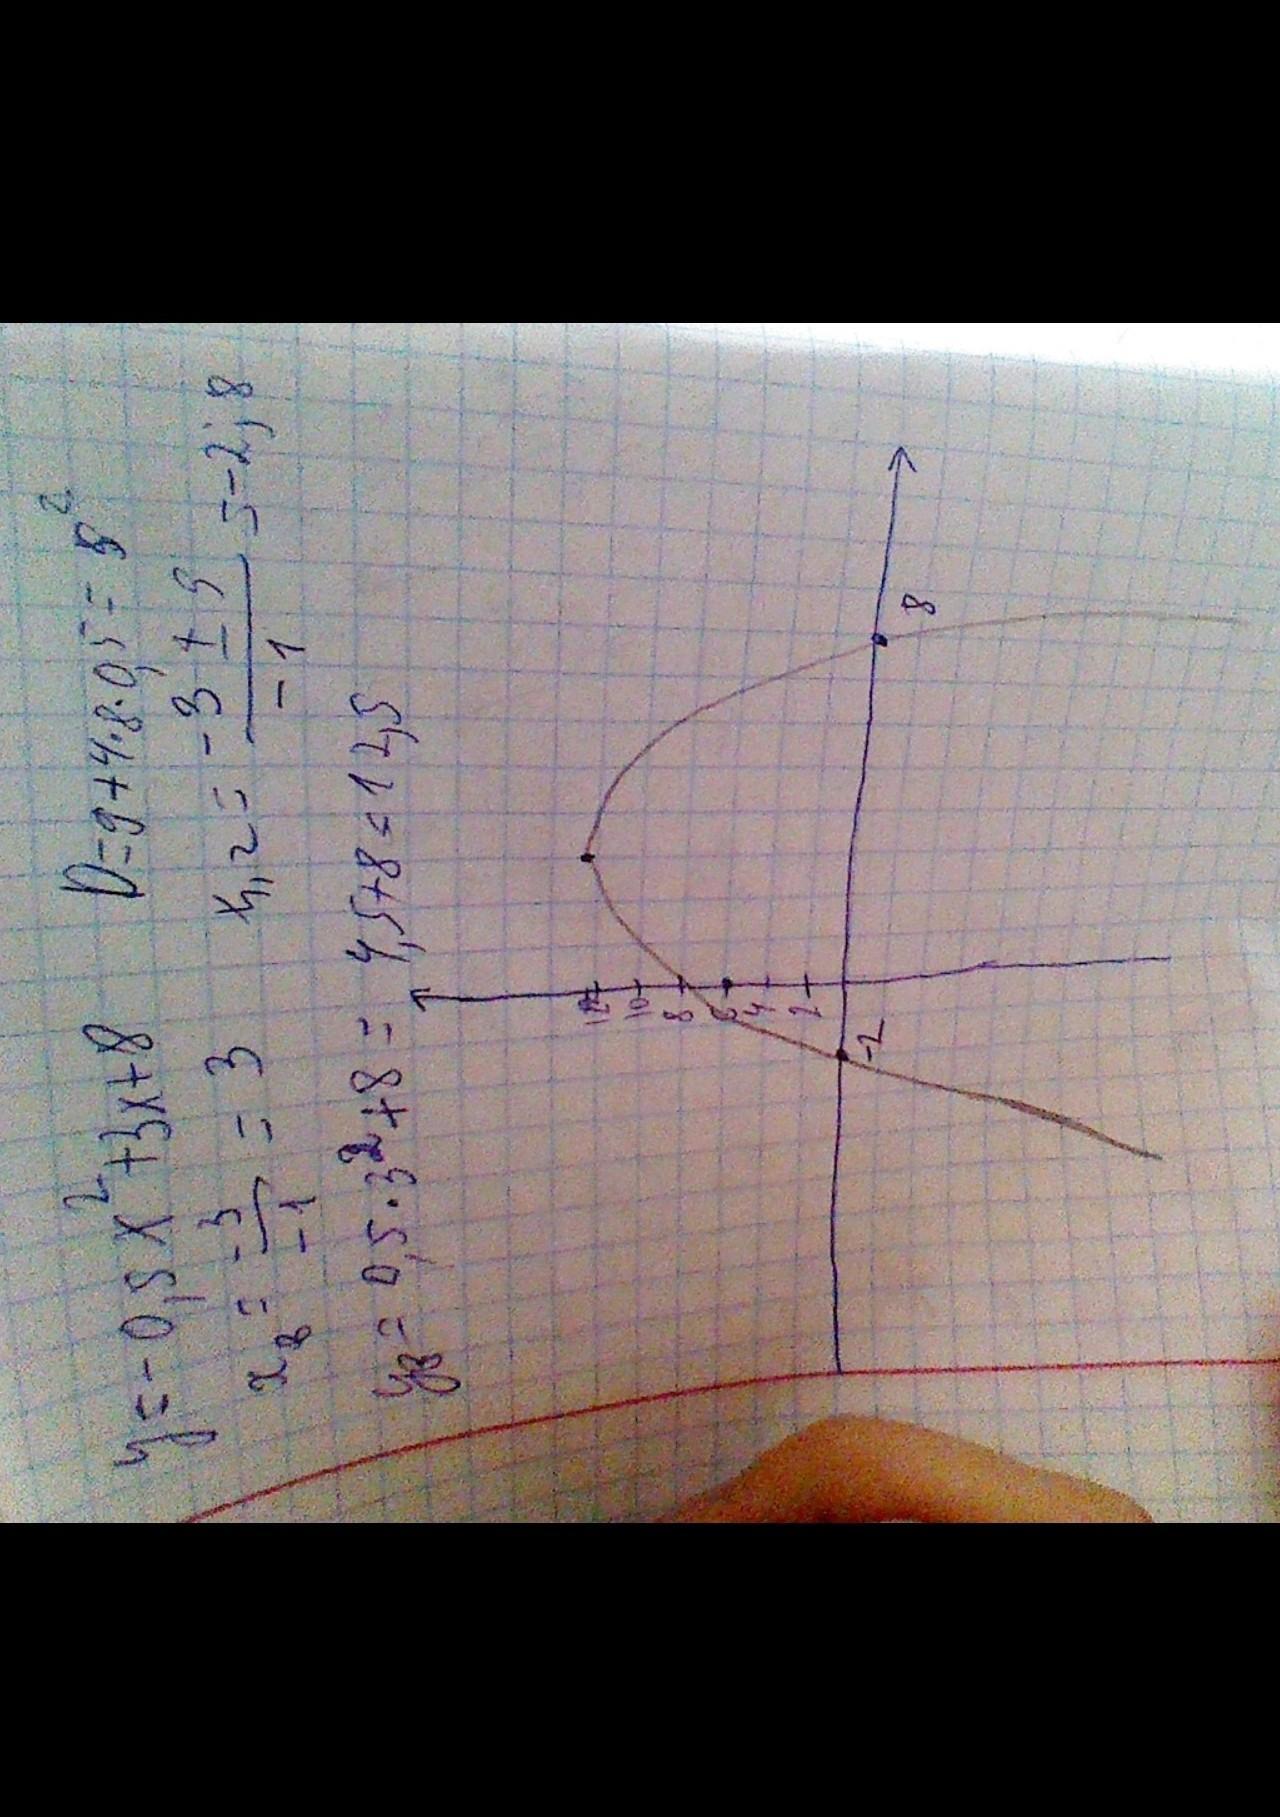 y = -0,5x² + 3x + 8 D = 9 + 4·8·0,5 = 5²
xв = -3/-1 = 3 x1,2 = (-3 ± 5)/-1 = -2; 8
yв = 0,5·3² + 8 = 4,5 + 8 = 12,5
12
10
8
6
4
2
-2 8